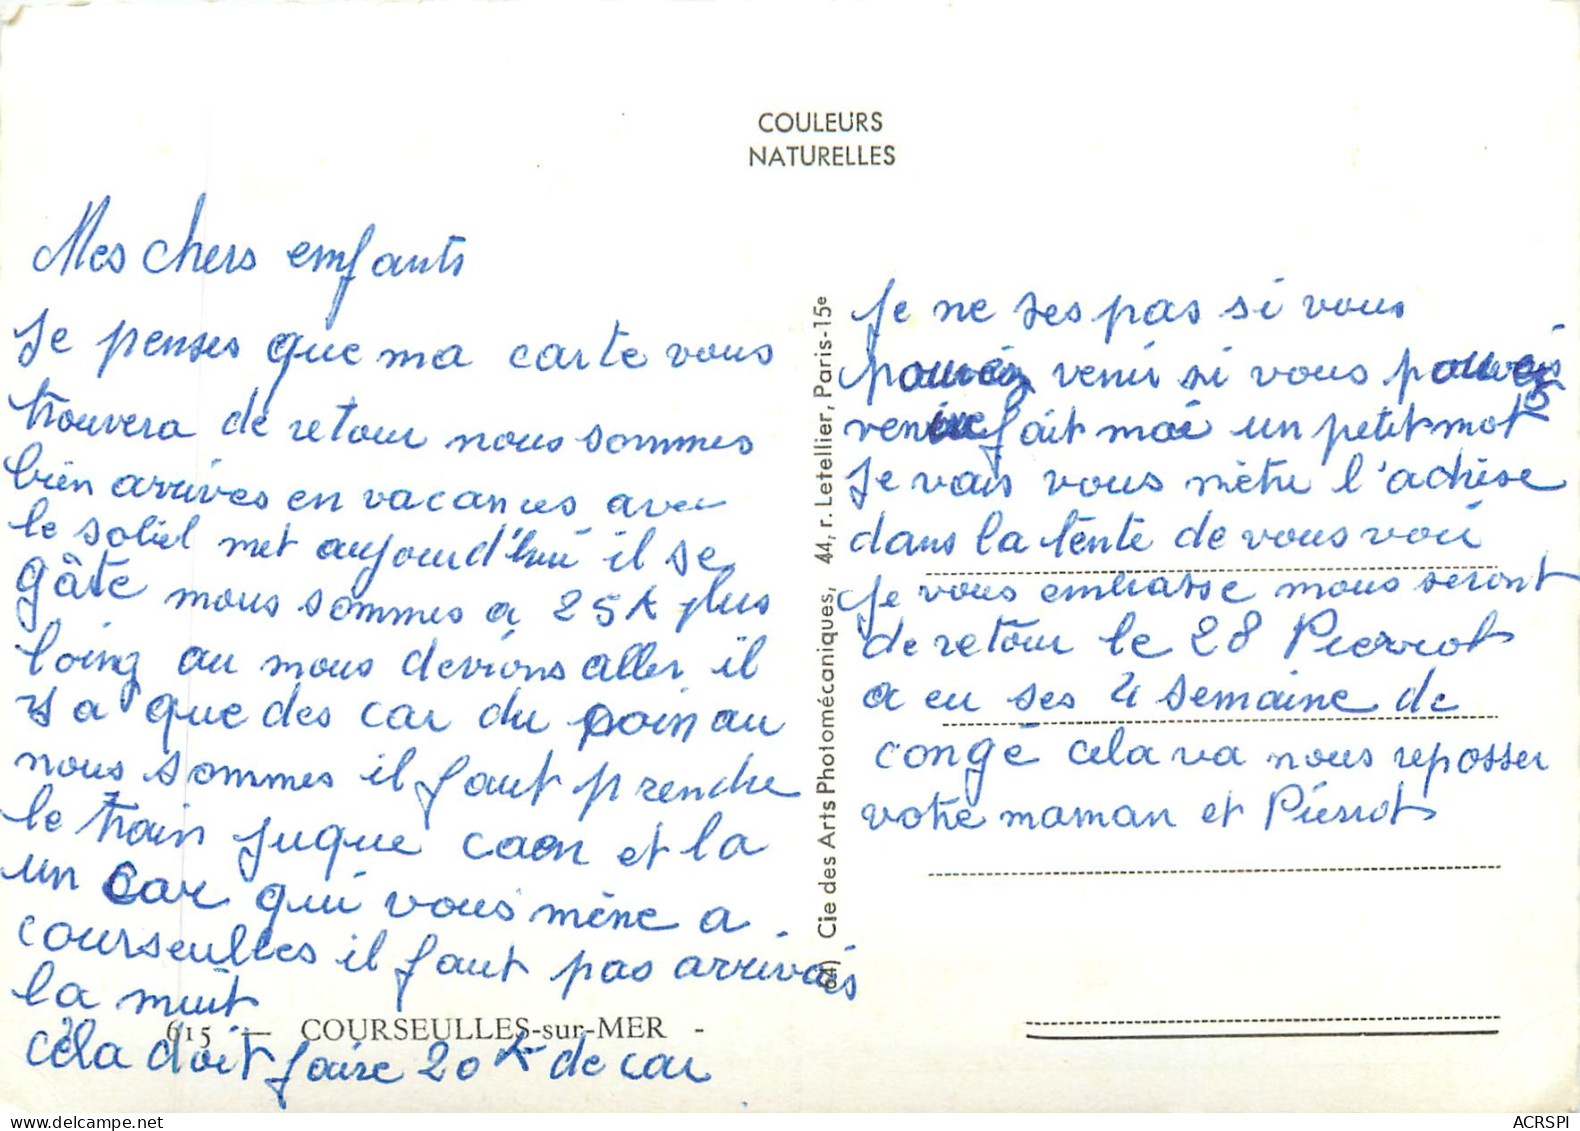 COULEURS
NATURELLES
Mes chers enfants
Je penses que ma carte vous
trouvera de retour nous sommes
bien arrives en vacances avec
le soliel met aujourd'hui il se
gâte nous sommes a 25 K plus
loing au nous devrions aller il
y a que des car du poin au
nous sommes il faut prendre
le train juque caen et la
un car qui vous mène a
courseulles il faut pas arrivais
la nuit
cela doit faire 20 K de car
615 — COURSEULLES-sur-MER -
64) Cie des Arts Photomécaniques, 44, r. Letellier, Paris-15e
Je ne ses pas si vous
pouvéz venir si vous pouvais
venire fait moi un petit mot
Je vais vous mètre l'adrèse
dans la tente de vous voir
je vous embrasse nous seront
de retour le 28 Pierrot
a eu ses 4 semaine de
congé cela va nous reposser
votre maman et Pierrot
ACRSPI